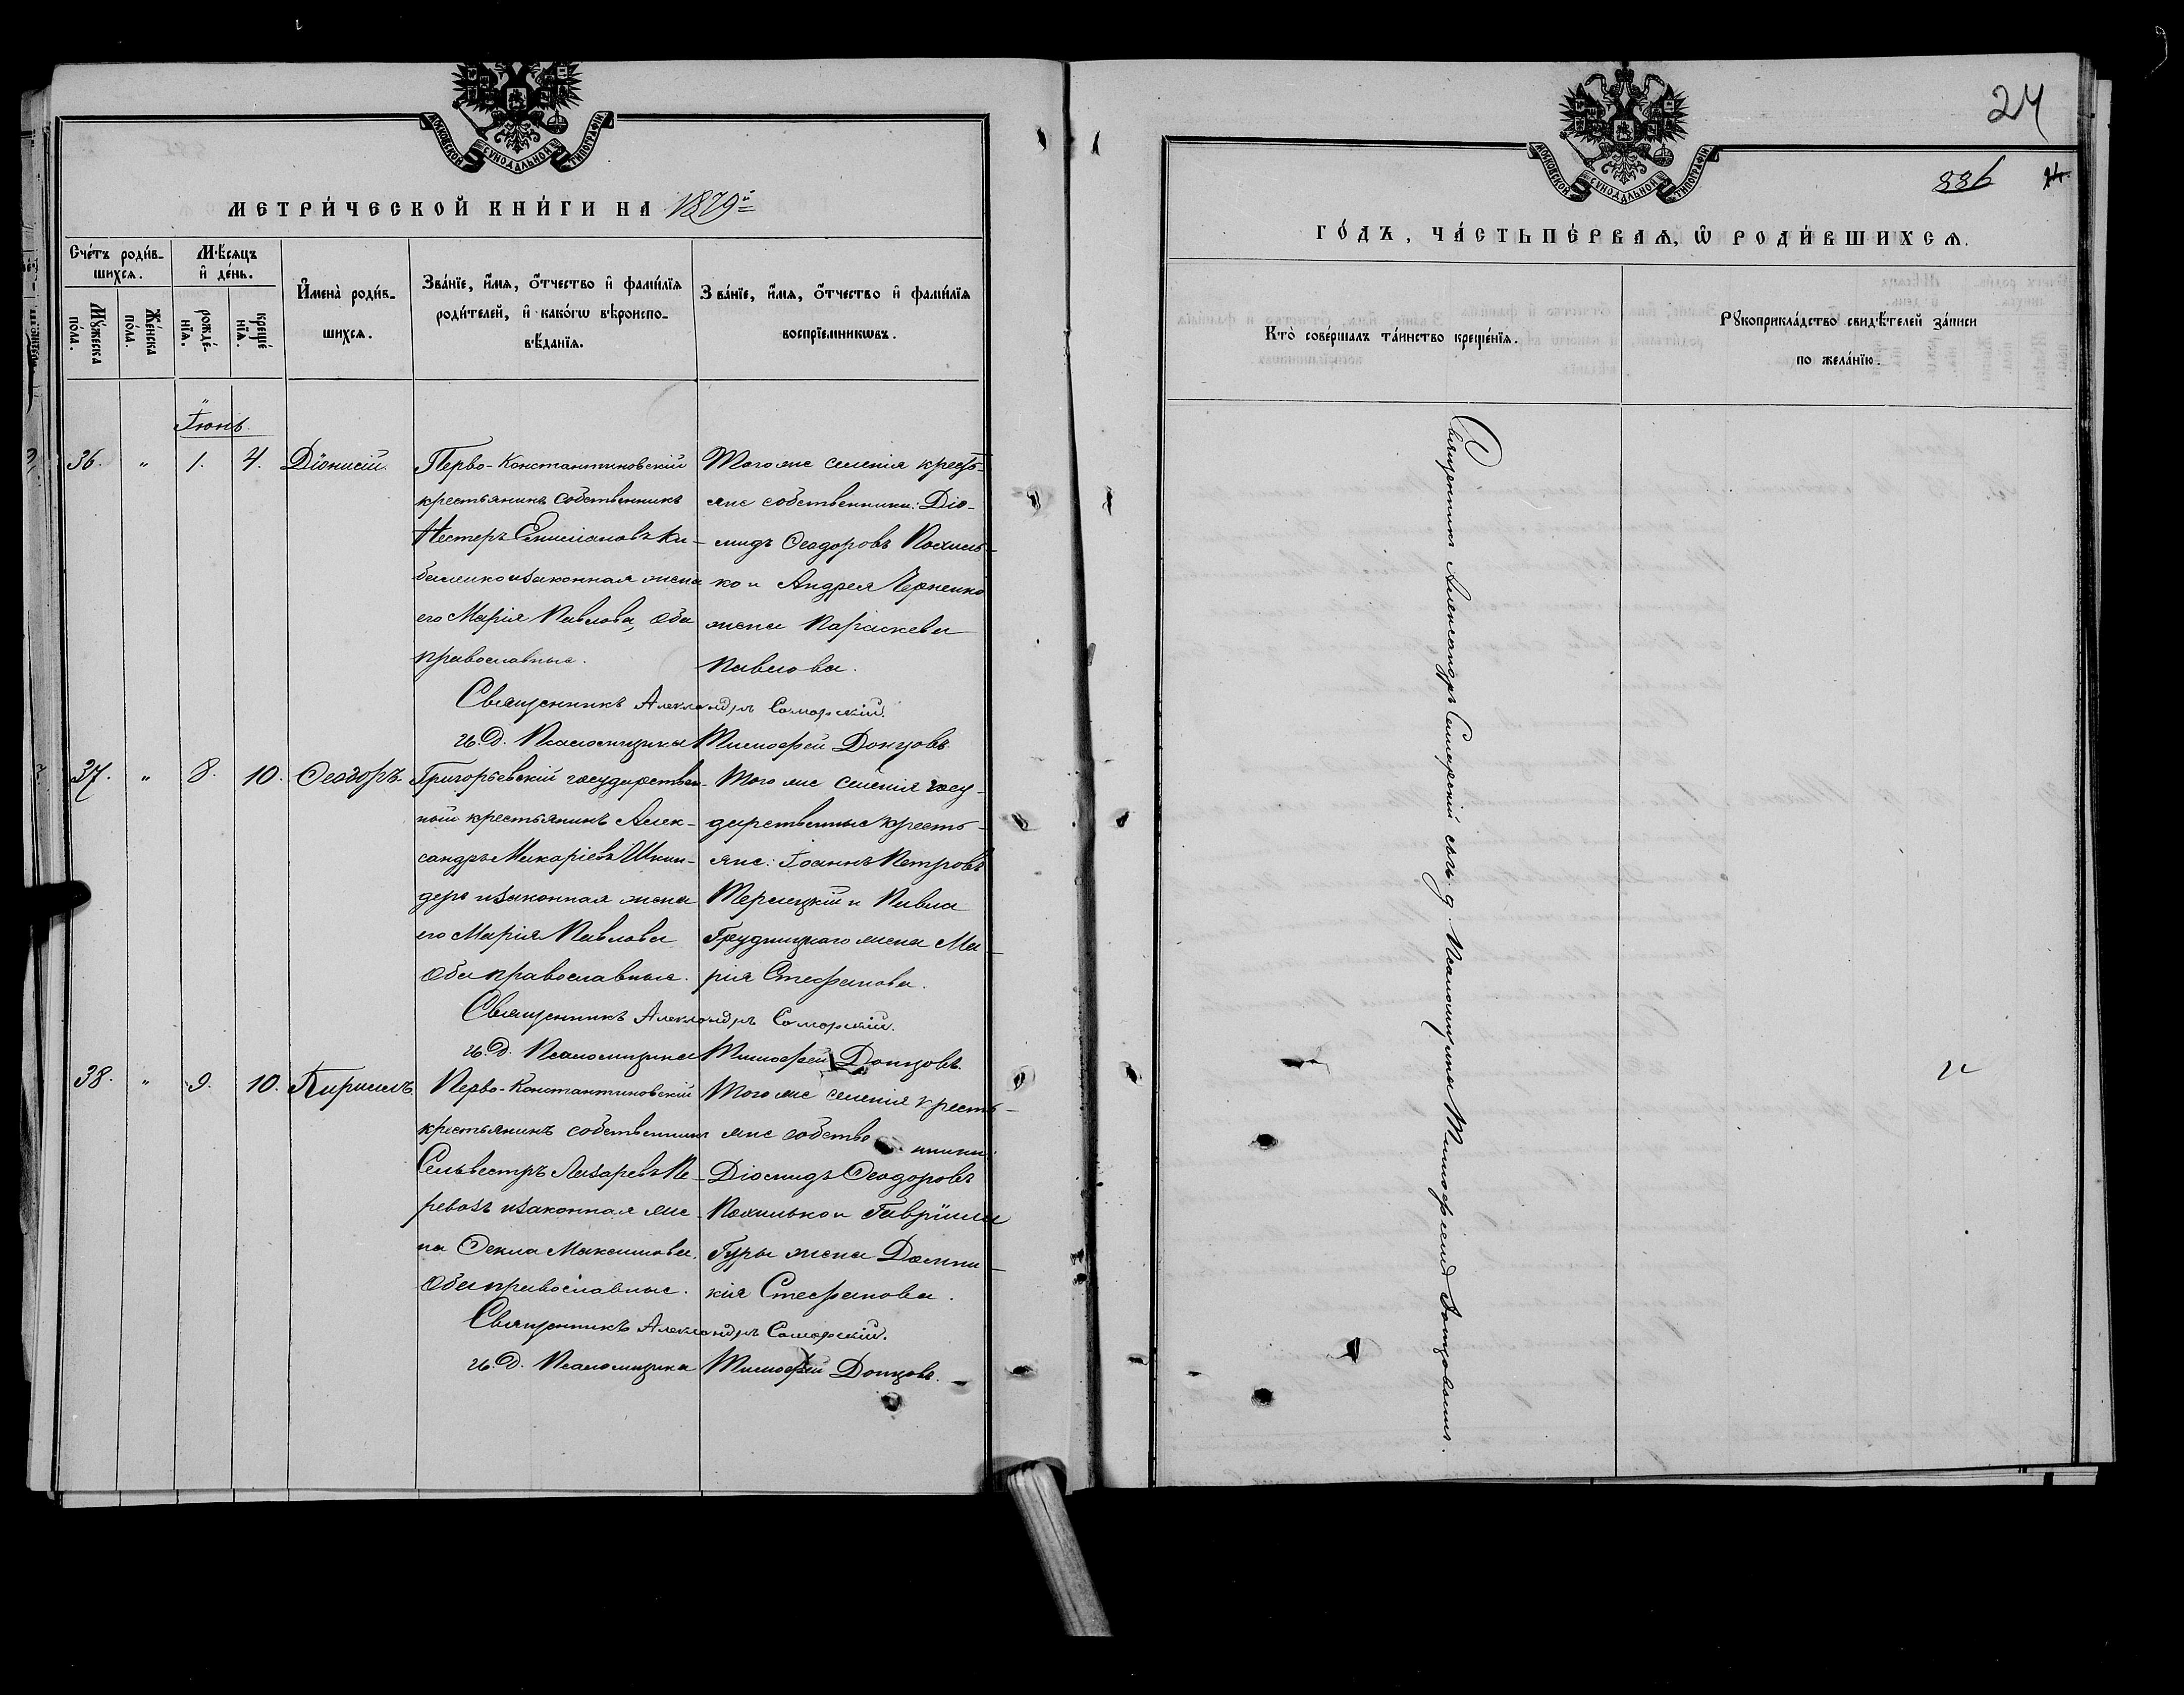 МОСКОВСКОЙ СУНОДАЛЬНОЙ ТИПОГРАФІИ
МЕТРИ́ЧЕСКОЙ КНИ́ГИ НА 1879й
Сче́тъ роди́в-
шихся.
Мѣ́сяцъ
и҆ де́нь.
Мꙋ́жеска по́ла.
Же́нска по́ла.
рожде́-
нїя.
креще́
нїя.
И҆мена̀ роди́в-
шихся.
Зва́нїе, и҆́мя, ѻ҆́тчество и҆ фами́лїя
роди́телей, и҆ како́гѡ вѣроиспо-
вѣ́данїя.
Зва́нїе, и҆́мя, ѻ҆́тчество и҆ фами́лїя
воспрїе́мникѡвъ.
Іюнь.
36. " 1. 4. Діонисій.
Перво-Константиновскій
крестьянинъ собственникъ
Нестеръ
и законная жена
его Марія Павлова, оба
православные.
Того же селенія кресть-
яне собственники: Діо-
мидъ Ѳеодоровъ Похиль-
ко и Андрея Черненко
жена Параскева
Павлова.
Священникъ Александръ Самарскій.
И. д. Псаломщика Тимофей Донцовъ.
37. " 8. 10. Ѳеодоръ
Григорьевскій государствен-
ный крестьянинъ Алек-
сандръ Макаріевъ Шкин-
деръ и законная жена
его Марія Павлова
оба православные.
Того же селенія госу-
дарственные кресть-
яне: Іоаннъ Петровъ
Терлецкій и Павла
Грудницкаго жена Ма-
рія Стефанова.
Священникъ Александръ Самарскій.
И. д. Псаломщика Тимофей Донцовъ.
38. " 9. 10. Кириллъ.
Перво-Константиновскій
крестьянинъ собственникъ
Сельвестръ Лазаревъ Пе-
ревозъ и законная же-
на Ѳекла Максимова,
оба православные.
Того же селенія кресть-
яне собственники:
Діомидъ Ѳеодоровъ
Похилько и Гавріила
Гуры жена Домни-
кія Стефанова.
Священникъ Александръ Самарскій.
И. д. Псаломщика Тимофей Донцовъ.
24
886
МОСКОВСКОЙ СУНОДАЛЬНОЙ ТИПОГРАФІИ
ГО́ДЪ, ЧА́СТЬ ПЕ́РВАЯ, Ѡ҆ РОДИ́ВШИХСЯ.
Кто̀ соверша́лъ та́инство креще́нїя.
Рꙋкоприкла́дство свидѣ́телей за́писи
по жела́нїю.
Священникъ Александръ Самарскій съ и. д. Псаломщика Тимофеемъ Донцовымъ.